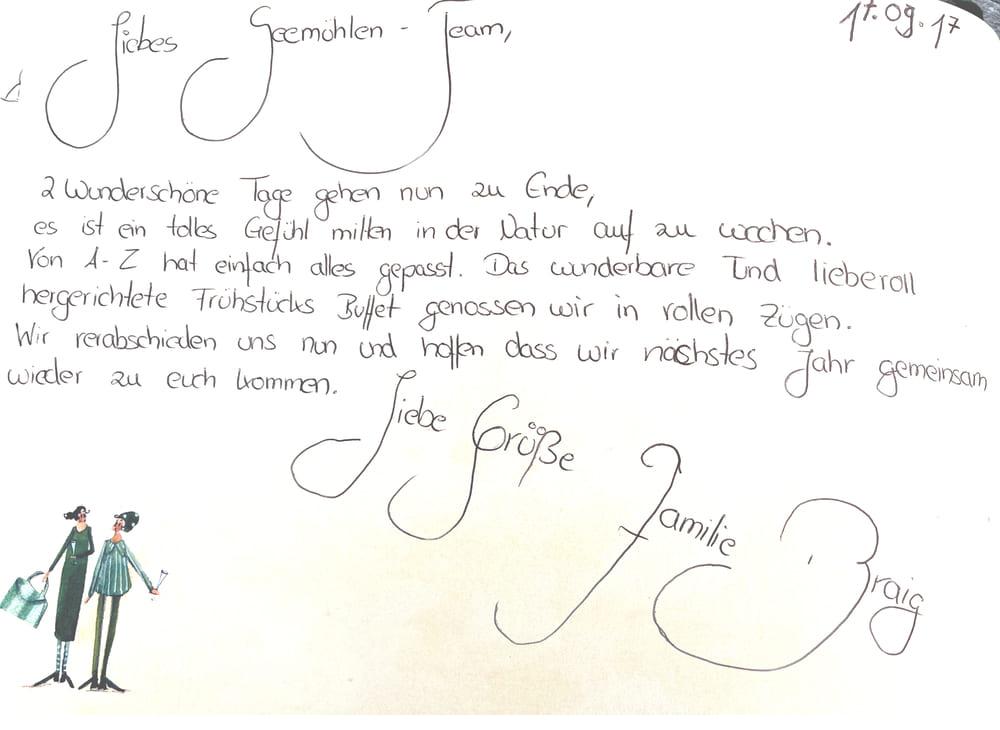 17.09.17
Liebes Seemühlen - Team,
2 Wunderschöne Tage gehen nun zu Ende,
es ist ein tolles Gefühl mitten in der Natur auf zu wachen.
Von A-Z hat einfach alles gepasst. Das wunderbare Und lieberoll
hergerichtete Frühstücks Buffet genossen wir in vollen Zügen.
Wir verabschieden uns nun und hoffen dass wir nächstes Jahr gemeinsam
wieder zu euch kommen.
Liebe Grüße
Familie Braig